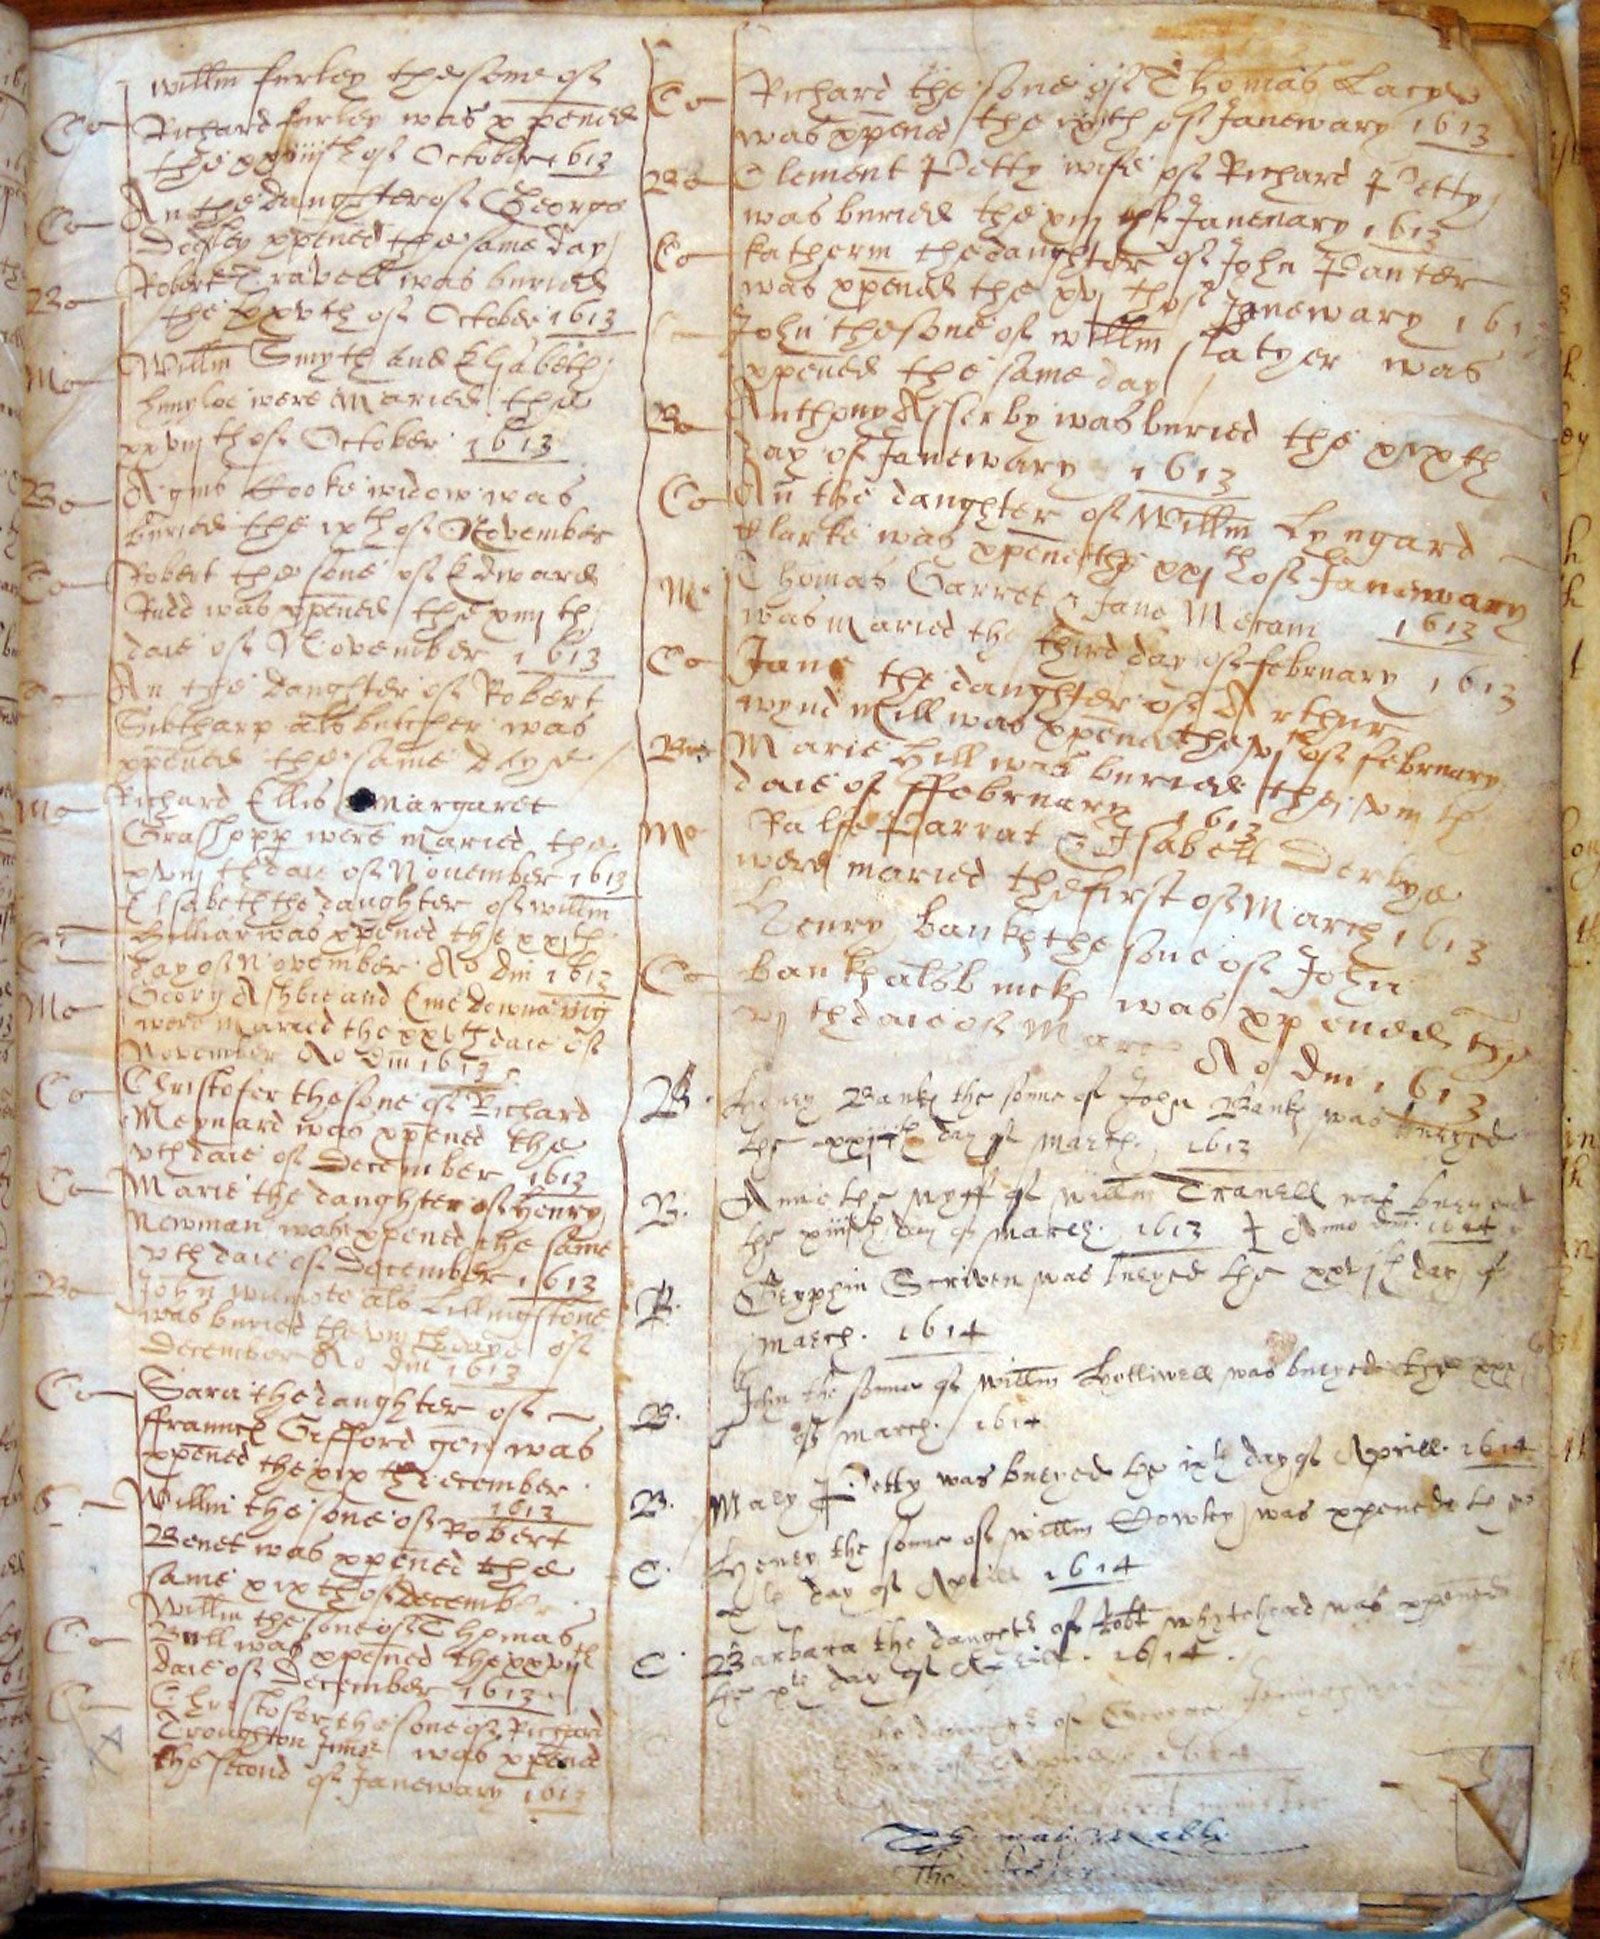 Willm furley the sone of
Co Richard furley was xpened
the xxiiijth of October 1613
Co An the daughter of George
xpened the same day
Bo Robert Travell was buried
the xxvth of October 1613
Mo Willm Smyth and Elizabeth
were Maried the
xxviijth of October 1613
Bo Agnis Cooke widow was
buried the ixth of November
Co Robert the sone of Edward
Rudd was xpened the xiiijth
daie of November 1613
Co An the daughter of Robert
Sibtharp als butcher was
xpened the same daye
Mo Richard Ellis Margaret
Grashopp were maried the
xviijth daie of November 1613
Elsabeth the daughter of willm
Co Hilliar was xpened the xxjth
day of November Ao Dm 1613
Mo Georg Ashbie and
were Maried the xxvth daie of
November Ao Dm 1613
Co Christofer the sone of Richard
Meynard was xpened the
vth daie of December 1613
Co Marie the daughter of Henry
Newman was xpened the same
vth daie of December 1613
Bo John wilmote als Killingstone
was buried the viijth daye of
December Ao Dm 1613
Co Sara the daughter of
ffrancis Gifford gen was
xpened the xixth December
1613
C Willm the sone of Robert
Benet was xpened the
same xixth of December
Willm the sone of Thomas
Co Bull was xpened the xxvijth
daie of December 1613
Co Christofer the sone of Richard
Troughton Junr was xpened
the second of Janewary 1613
Co Richard the sone of Thomas Lacye
was xpened the ixth of Janewary 1613
Bo Clement Petty wife of Richard Petty
was buried the xiij of Janenary 1613
Co Katherin the daughter of John Panter
was xpened the xvjth of Janewary 1613
John the sone of willm Slatyer was
xpened the same day
Bo Anthony Asserby was buried the xixth
day of Janewary 1613
Co An the daughter of Willm Lyngard
Clarke was xpened the xxjth of Janewary
1613
Mo Thomas Garret & Jane Meram
was maried the third day of february 1613
Co Jane the daughter of Arthur
wynd Mill was xpened the vjth of february
Bo Marie Hill was buried the viijth
daie of ffebruary 1613
Mo Ralfe Parrat & Isabell Derbye
were maried the first of March 1613
Henry Banks the sone of John
Co Banks als was xpened the
vjth daie of March Ao Dm 1613
B. Henry Banks the sonne of John Banks was buryed
the day of march 1613
B. Anne the wyff of willm Travell was buryed
the xiiijth day of march. 1613 Anno dm. 1614
B. Gryphin Scriven was buryed the xxvjth day of
march. 1614
B. John the sonne of willm Holliwell was buryed the
of march. 1614
B. Mary Petty was buryed the ixth day of Aprill. 1614
C. Henry the sonne of willm Cowley was xpened the
day of Aprill 1614
C. Barbara the daughter of Robt whytehead was xpened
the xth day of Aprill. 1614.
the daughter of George
1614
Thomas
The